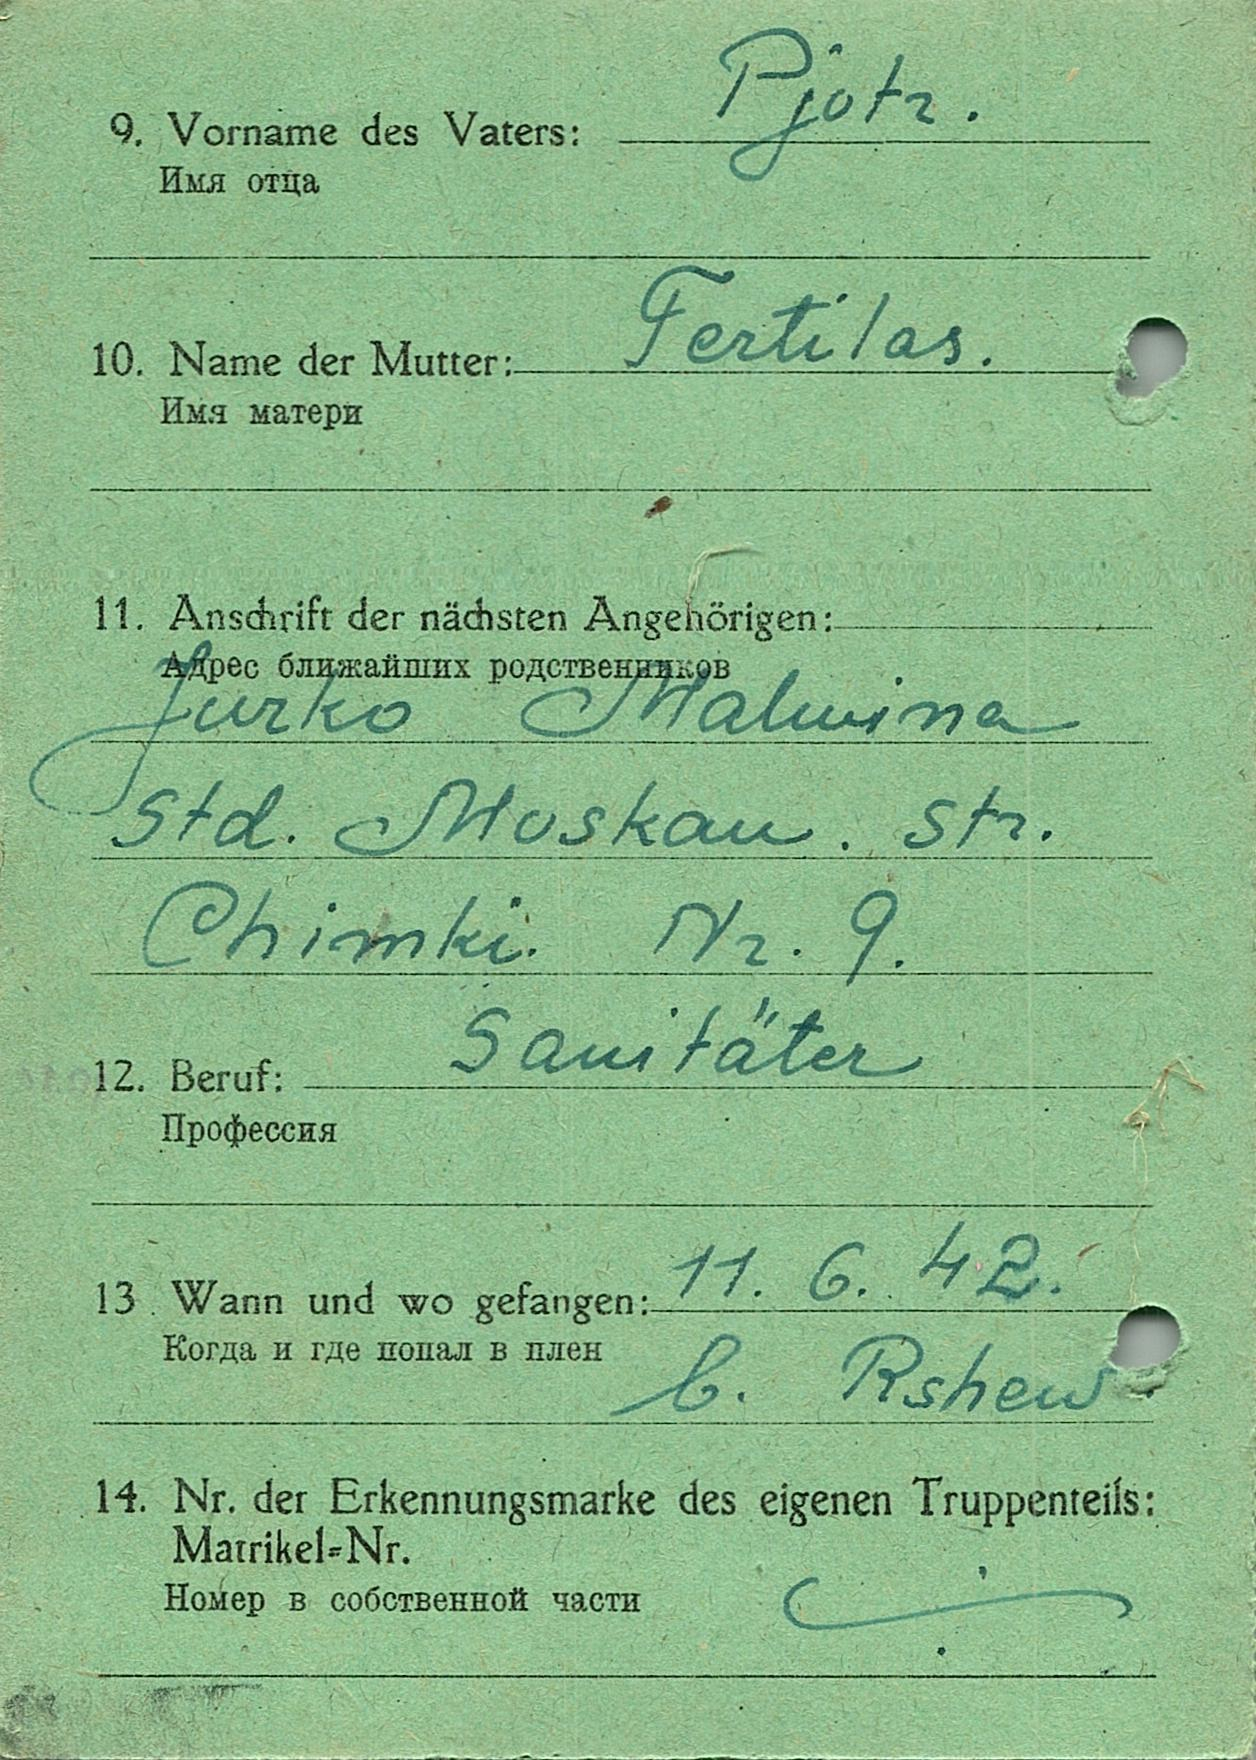 Pjotr.
9. Vorname des Vaters:
Имя отца
Fertilas.
10. Name der Mutter:
Имя матери
11. Anschrift der nächsten Angehörigen:
Адрес ближайших родственников
Jurko Malwina
Std. Moskau. str.
Chimki. Nr. 9.
Sanitäter
12. Beruf:
Профессия
11. 6. 42.
13. Wann und wo gefangen:
Когда и где попал в плен
b. Rshew.
14. Nr. der Erkennungsmarke des eigenen Truppenteils:
Matrikel-Nr.
Номер в собственной части